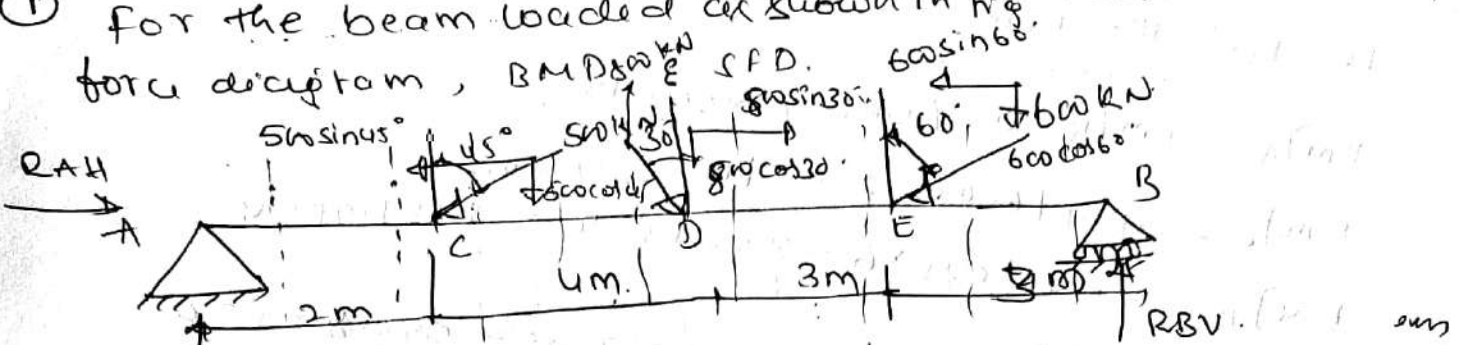 ① For the beam loaded as shown in fig
force diagram, BMD & SFD.
800 kN
600sin60°
500sin45°
45°
500 kN
30°
800sin30°
60°
600 kN
RAH
500cos45
800cos30°
600cos60°
A
C
D
E
B
2m
4m.
3m
3m
RBV.